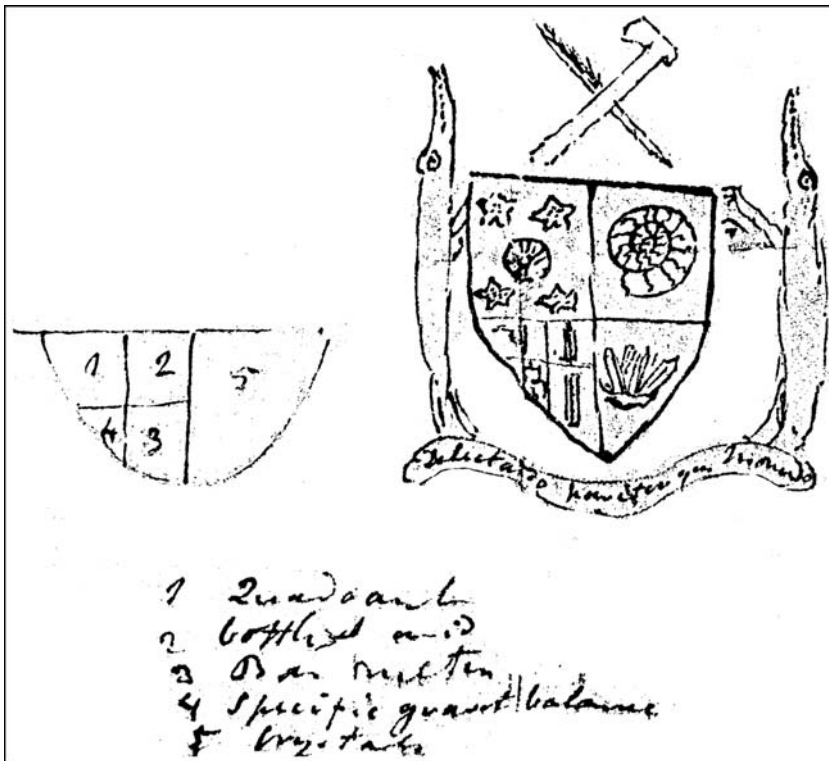 1 2 5
4 3
Delectando pariterque Monendo
1 Quadrant
2 bottle acid
3 Barometer
4 Specific gravit balance
5 Crystals